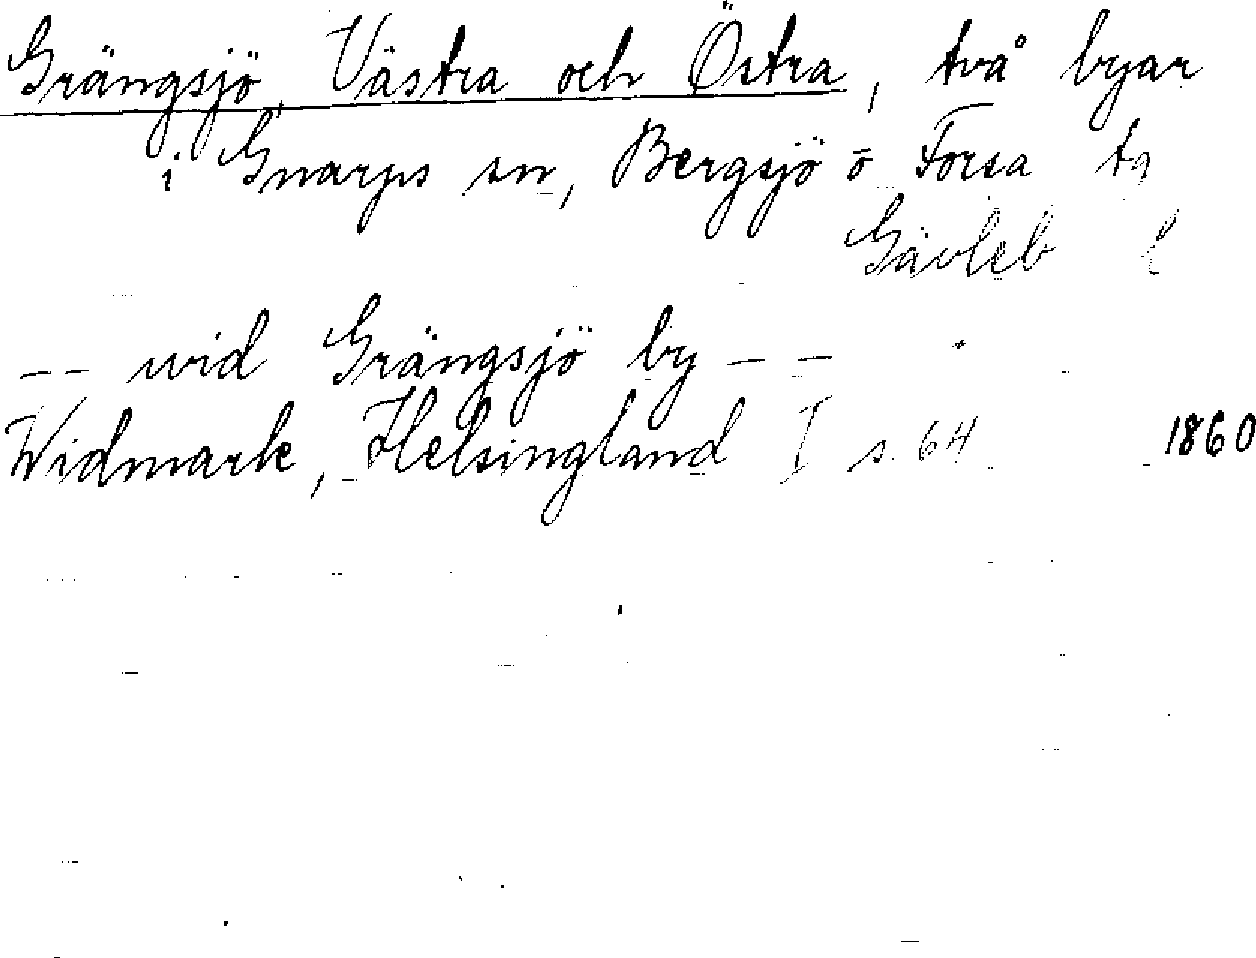 Grängsjö, Västra och Östra, två byar
i Gnarps sn, Bergsjö o Forsa tg
Gävleb l
-- wid Grängsjö by --
Widmark, Helsingland I s. 64 1860